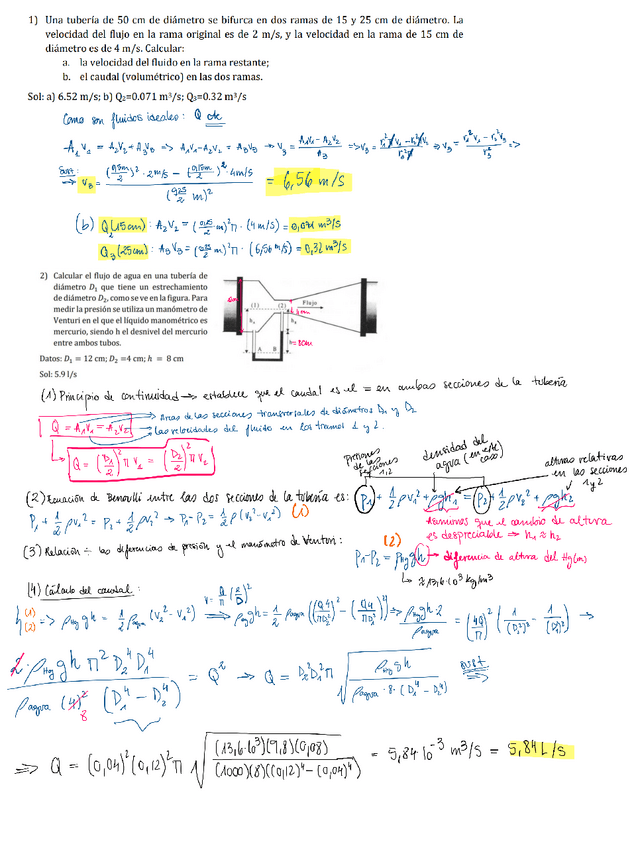 1) Una tubería de 50 cm de diámetro se bifurca en dos ramas de 15 y 25 cm de diámetro. La
velocidad del flujo en la rama original es de 2 m/s, y la velocidad en la rama de 15 cm de
diámetro es de 4 m/s. Calcular:
a. la velocidad del fluido en la rama restante;
b. el caudal (volumétrico) en las dos ramas.
Sol: a) 6.52 m/s; b) Q₂=0.071 m³/s; Q₃=0.32 m³/s
Como son fluidos ideales: Q cte
A₁V₁ = A₂V₂ + A₃V₃ => A₁V₁ - A₂V₂ = A₃V₃ → V₃ = (A₁V₁ - A₂V₂)/A₃
V₃ = ((0,5m/2)² · 2m/s - (0,15m/2)² · 4m/s)/(0,25/2 m)² = 6,56 m/s
(b) Q₂(15cm): A₂V₂ = (0,15/2 m)²π · (4m/s) = 0,071 m³/s
Q₃(25cm): A₃V₃ = (0,25/2 m)²π · (6,56 m/s) = 0,32 m³/s
2) Calcular el flujo de agua en una tubería de
diámetro D₁ que tiene un estrechamiento
de diámetro D₂, como se ve en la figura. Para
medir la presión se utiliza un manómetro de
Venturi en el que el líquido manométrico es
mercurio, siendo h el desnivel del mercurio
entre ambos tubos.
Datos: D₁ = 12 cm; D₂ =4 cm; h = 8 cm
Sol: 5.9 l/s
(1) (2) Flujo
h=8cm
A B
(1) Principio de continuidad → establece que el caudal es el = en ambas secciones de la tubería
Q = A₁V₁ = A₂V₂
Áreas de las secciones transversales de diámetros D₁ y D₂
las velocidades del fluido en los tramos 1 y 2.
Q = (D₁/2)² π V₁ = (D₂/2)² π V₂
Presiones de las secciones 1,2
densidad del agua (en este caso)
alturas relativas en las secciones 1 y 2
(2) Ecuación de Bernoulli entre las dos secciones de la tubería es: P₁ + 1/2 ρv₁² + ρgh₁ = P₂ + 1/2 ρv₂² + ρgh₂
P₁ + 1/2 ρv₁² = P₂ + 1/2 ρv₂² → P₁ - P₂ = 1/2 ρ(v₂² - v₁²) (1)
Asumimos que el cambio de altura
es despreciable → h₁ ≈ h₂
(3) Relación ÷ las diferencias de presión y el manómetro de Venturi:
(2)
P₁ - P₂ = ρHg g h → diferencia de altura del Hg (m)
≈ 13,6·10³ kg/m³
(4) Cálculo del caudal:
(1) (2) => ρHg g h = 1/2 ρagua (v₂² - v₁²) => ρHg g h = 1/2 ρagua ((Q4/πD₂²)² - (Q4/πD₁²)²) => ρHg g h 2/ρagua = (4Q/π)² (1/(D₂²)² - 1/(D₁²)²) →
2·ρHg g h π² D₂⁴ D₁⁴/(ρagua (4)² (D₁⁴ - D₂⁴)) = Q² → Q = D₂² D₁² π √(ρHg g h/(ρagua · 8 · (D₁⁴ - D₂⁴))) sust
=> Q = (0,04)² (0,12)² π √((13,6·10³)(9,8)(0,08)/((1000)(8)((0,12)⁴ - (0,04)⁴))) = 5,84·10⁻³ m³/s = 5,84 L/s